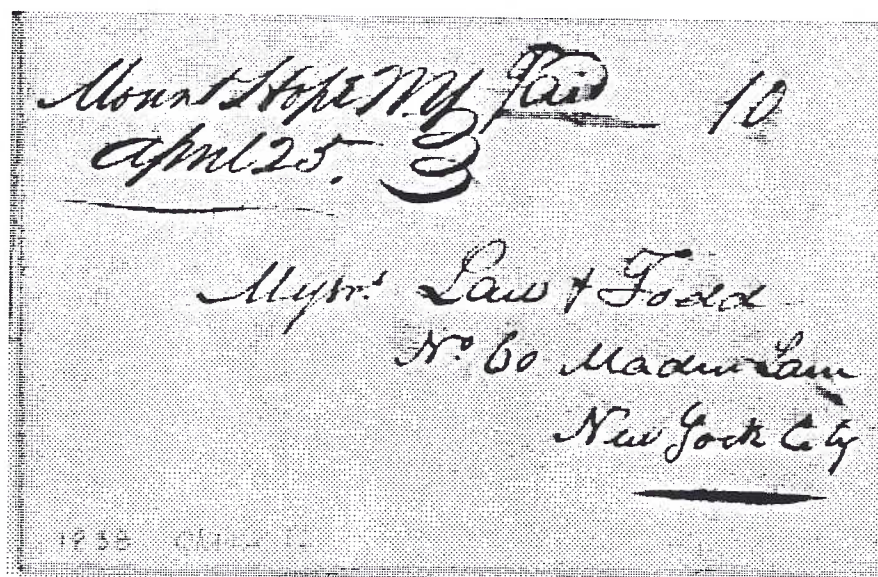 Mount Hope N.Y. Paid 10
April 25.
Messrs. Law & Todd
No. 60 Maiden Lane
New York City
1838